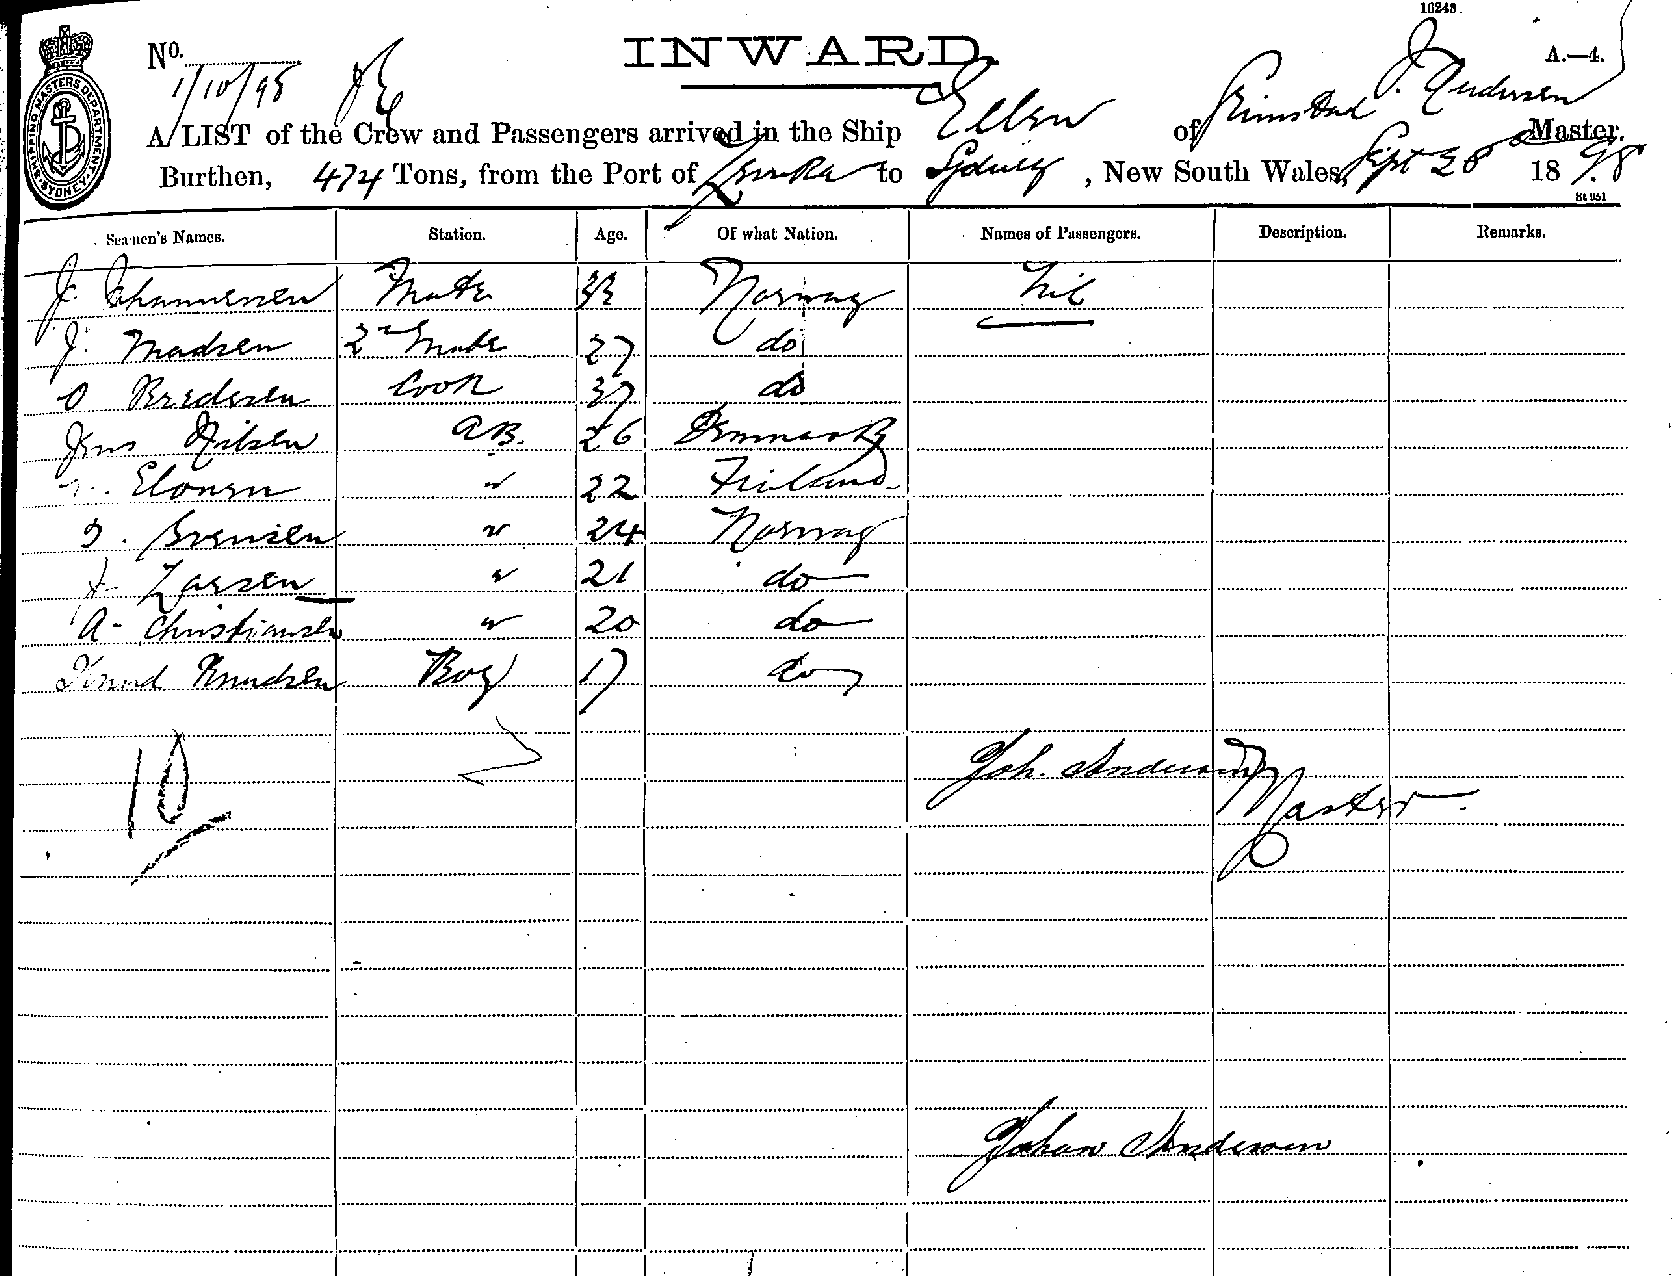 10248.
No. INWARD A.—4.
1/10/98
A LIST of the Crew and Passengers arrived in the Ship Ellen of Grimstad J. Andersen Master.
Burthen, 474 Tons, from the Port of Levuka to Sydney, New South Wales, Sept 28 1898
St 951
SHIPPING MASTERS DEPARTMENT SYDNEY
Seamen's Names. Station. Age. Of what Nation. Names of Passengers. Description. Remarks.
J. Johannessen Mate 33 Norway Nil
J. Madsen 2nd Mate 27 do
O Bredesen Cook 37 do
Jens Nilsen AB. 26 Denmark
Elonen " 22 Finland
Svensen " 24 Norway
Larsen " 21 do
A. Christiansen " 20 do
Knud Knudsen Boy 17 do
10
Joh. Andersen
Master
Johan Andersen